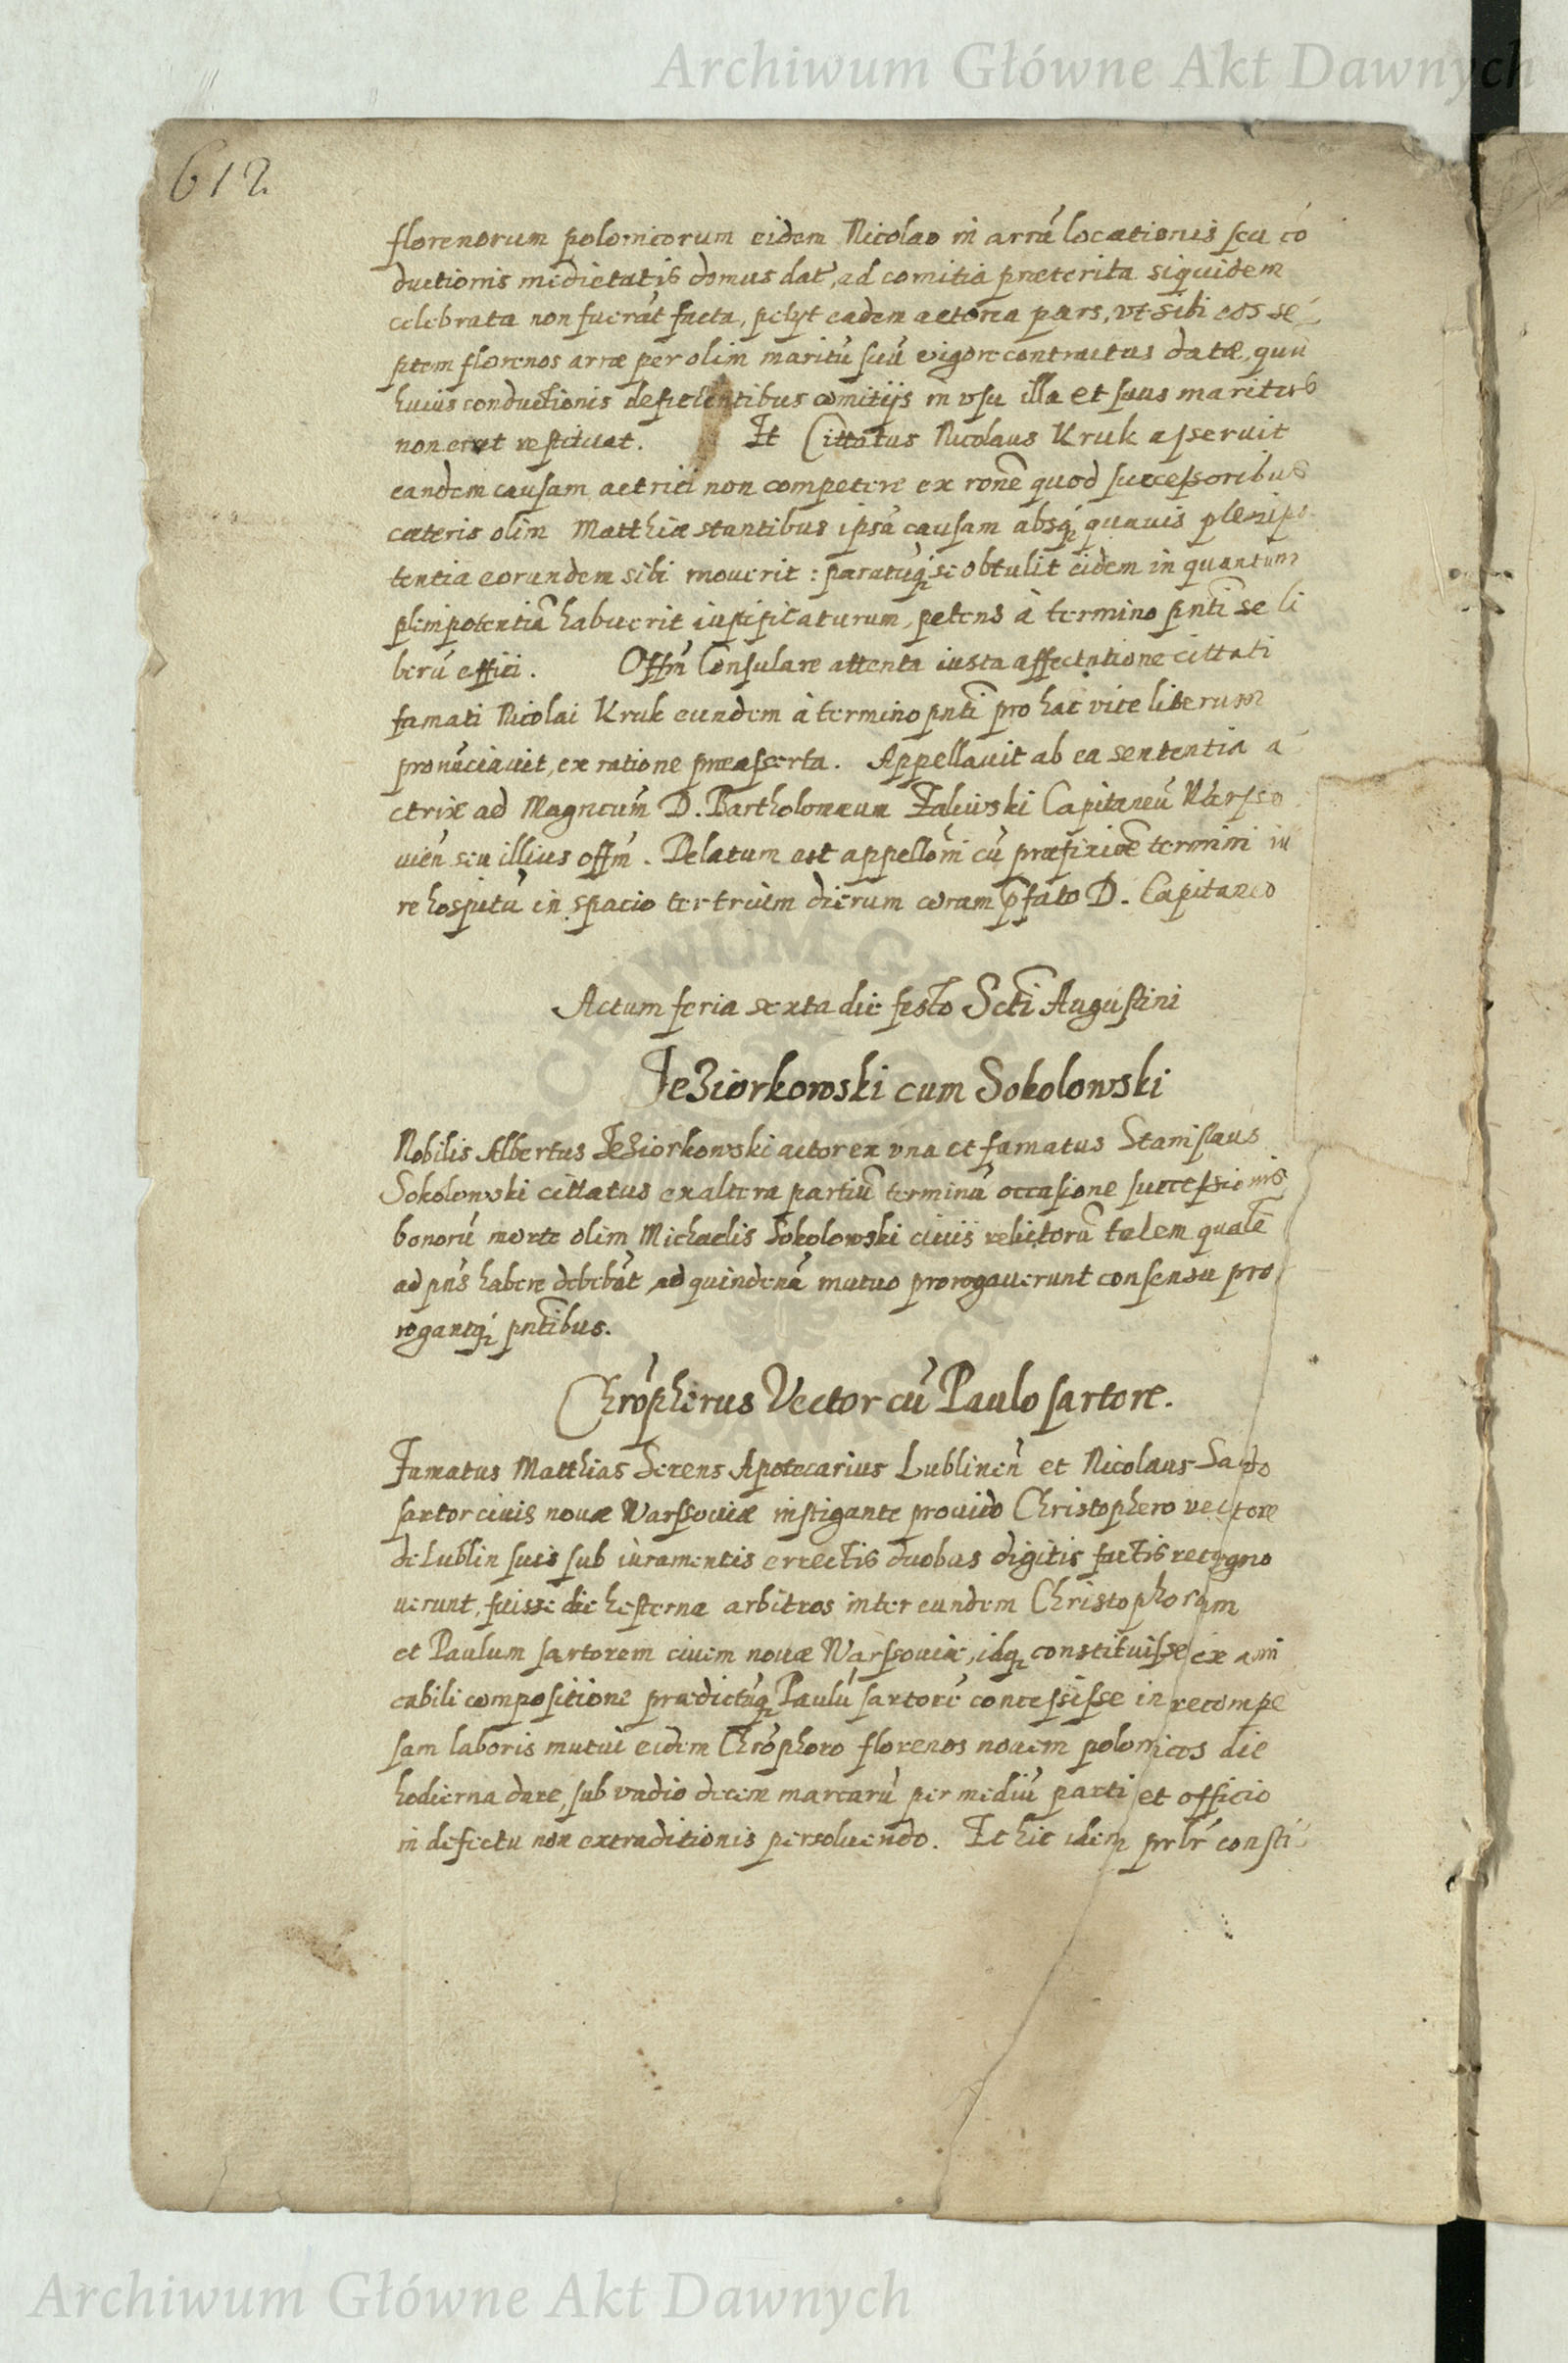 Archiwum Główne Akt Dawnych
612
florenorum polonicorum eidem Nicolao in arrã locationis seu cõ
ductionis medietatis domus dat, ad comitia præterita siquidem
celebrata non fuerãt facta, petyt eadem actorea pars, vt sibi eos sẽ
ptem florenos arræ per olim maritũ suũ vigore contractus datæ, quũ
huius conductionis deficientibus comitijs in vsu illa et suus maritus
non erat restituat. Et Cittatus Nicolaus Kruk asseruit
eandem causam actrici non competere ex rõne quod successoribus
cæteris olim Matthiæ stantibus ipsã causam absq; quauis plenipo
tentia eorundem sibi mouerit: paratũq; se obtulit eidem in quantum
plenipotentiã habuerit iustificaturum, petens à termino pñti se li
berũ effici. Offm̃ Consulare attenta iusta affectatione cittati
famati Nicolai Kruk eundem à termino pñti pro hac vice liberum
pronũciauit, ex ratione præasserta. Appellauit ab ea sententia a
ctrix ad Magncum̃ D. Bartholomæum Zaliwski Capitaneũ Warsso
uieñ seu illius offm̃. Delatum est appellõni cũ præfixiõe termini iu
re hospitũ in spacio ter trium dierum coram p̃fato D. Capitaneo
Actum feria sexta die festo Scti Augustini
Jeziorkowski cum Sokolowski
Nobilis Albertus Jeziorkowski actor ex vna et famatus Stanislaus
Sokolowski cittatus ex altera partiũ terminũ occasione successionis
bonorũ morte olim Michaelis Sokolowski ciuis relictorũ talem qualẽ
ad pñs habere debebãt ad quindenã mutuo prorogauerunt consensu pro
rogantq; pñtibus.
Chrõpherus Vector cũ Paulo sartore.
Famatus Matthias Serens Apotecarius Lublineñ et Nicolaus
sartor ciuis nouæ Warssouiæ instigante prouido Christophero vectore
de Lublin suis sub iuramentis errectis duobus digitis factis recogno
uerunt, fuisse die hesterna arbitros inter eundem Christophorum
et Paulum sartorem ciuem nouæ Warssouiæ, idq; constituisse ex ami
cabili compositione prædictũq; Paulũ sartorẽ concessisse in recompẽ
sam laboris mutui eidem Chrõphoro florenos nouem polonicos die
hodierna dare, sub vadio decem marcarũ per mediũ parti et officio
in defectu non extraditionis persoluendo. Et hic idem consti
Archiwum Główne Akt Dawnych